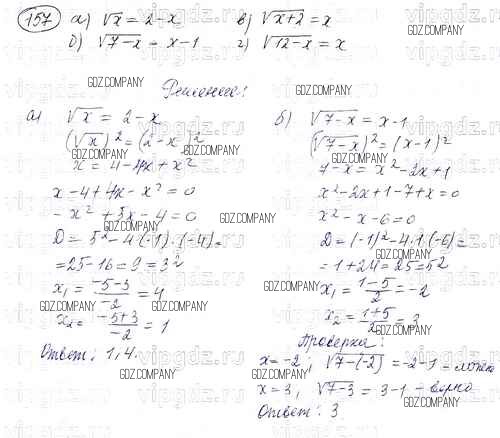 157 а) √x = 2-x в) √x+2 = x
б) √7-x = x-1 г) √12-x = x
Решение:
а) √x = 2-x
(√x)² = (2-x)²
x = 4-4x+x²
x-4+4x-x²=0
-x²+5x-4=0
D = 5²-4·(-1)·(-4)=
=25-16=9=3²
x₁ = -5-3/-2 = 4
x₂ = -5+3/-2 = 1
Ответ: 1, 4.
б) √7-x = x-1
(√7-x)² = (x-1)²
7-x = x²-2x+1
x²-2x+1-7+x=0
x²-x-6=0
D=(-1)²-4·1·(-6)=
=1+24=25=5²
x₁ = 1-5/2 = -2
x₂ = 1+5/2 = 3
Проверка:
x=-2; √7-(-2) = -2-1 - ложно
x=3, √7-3 = 3-1 - верно
Ответ: 3